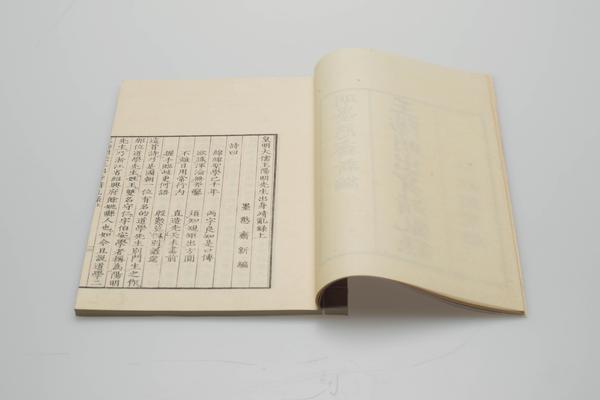 皇明大儒王陽明先生出身靖亂錄上
墨憨齋新編
詩曰
綿綿聖學已千年　兩字良知是口傳
欲識渾淪無斧鑿　須知規矩出方圓
不離日用常行內　直造先天未畫前
握手臨岐更何語　殷勤莫愧別離筵
這首詩乃是國朝一位有名的道學先生別門生之作
那位道學先生姓王雙名守仁字伯安學者稱爲陽明
先生乃浙江省紹興府餘姚縣人也如今且說道學二